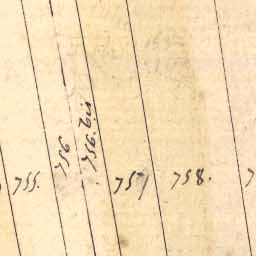 755.
756
756.bis
757
758.
7